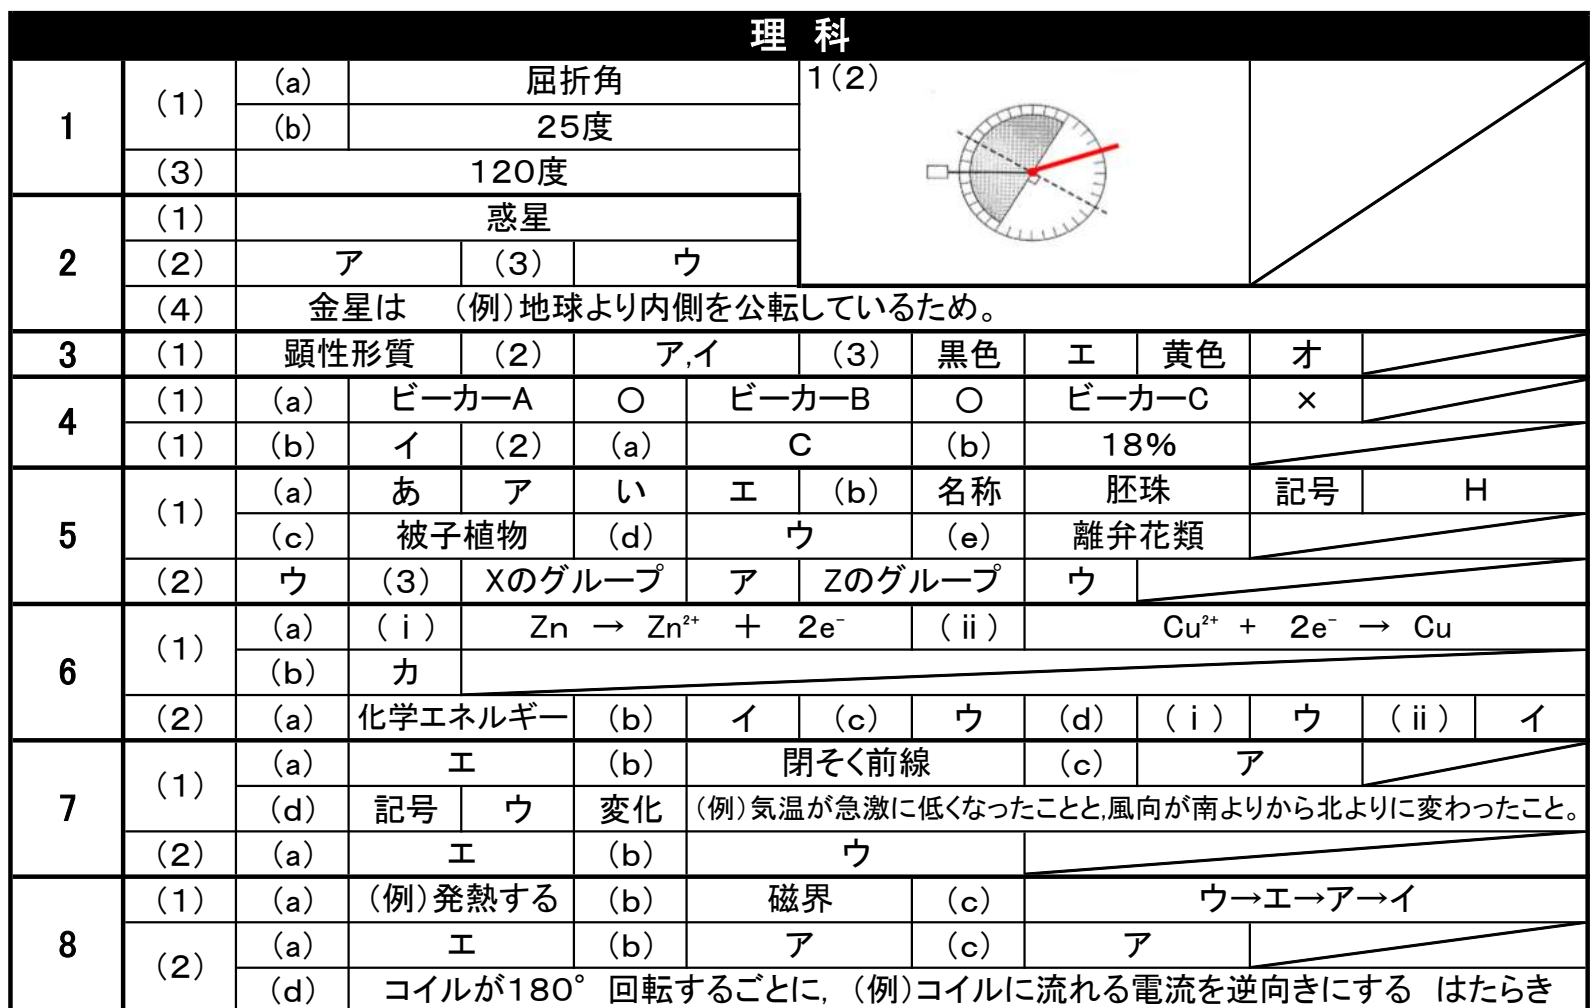 理 科
1 (1) (a) 屈折角 1(2)
(b) 25度
(3) 120度
2 (1) 惑星
(2) ア (3) ウ
(4) 金星は (例)地球より内側を公転しているため。
3 (1) 顕性形質 (2) ア,イ (3) 黒色 エ 黄色 オ
4 (1) (a) ビーカーA ○ ビーカーB ○ ビーカーC ×
(1) (b) イ (2) (a) C (b) 18%
5 (1) (a) あ ア い エ (b) 名称 胚珠 記号 H
(c) 被子植物 (d) ウ (e) 離弁花類
(2) ウ (3) Xのグループ ア Zのグループ ウ
6 (1) (a) (ⅰ) Zn → Zn²⁺ + 2e⁻ (ⅱ) Cu²⁺ + 2e⁻ → Cu
(b) カ
(2) (a) 化学エネルギー (b) イ (c) ウ (d) (ⅰ) ウ (ⅱ) イ
7 (1) (a) エ (b) 閉そく前線 (c) ア
(d) 記号 ウ 変化 (例)気温が急激に低くなったことと,風向が南よりから北よりに変わったこと。
(2) (a) エ (b) ウ
8 (1) (a) (例)発熱する (b) 磁界 (c) ウ→エ→ア→イ
(2) (a) エ (b) ア (c) ア
(d) コイルが180° 回転するごとに, (例)コイルに流れる電流を逆向きにする はたらき